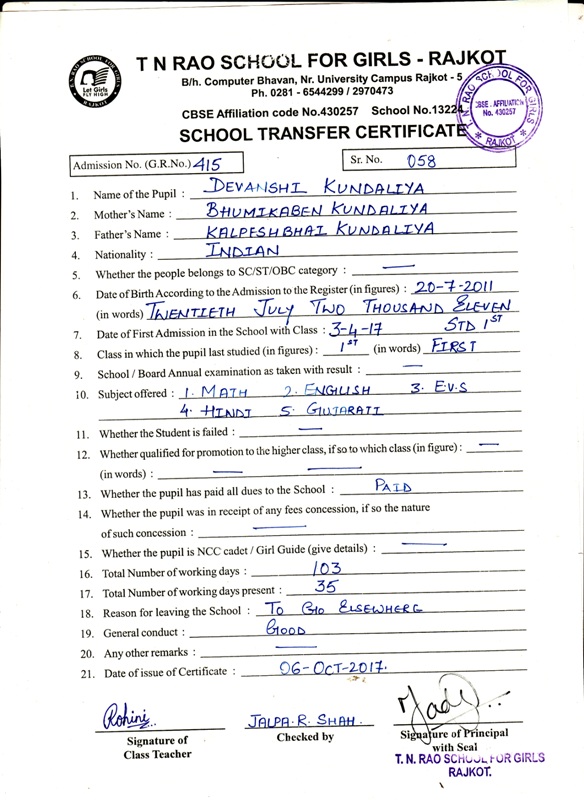 T N RAO SCHOOL FOR GIRLS - RAJKOT
B/h. Computer Bhavan, Nr. University Campus Rajkot - 5
Ph. 0281 - 6544299 / 2970473
CBSE Affiliation code No.430257 School No.13224
SCHOOL TRANSFER CERTIFICATE
T. N. RAO SCHOOL FOR GIRLS
CBSE. AFFILIATION
No. 430257
* RAJKOT *
T. N. RAO SCHOOL FOR GIRLS
Let Girls
FLY HIGH
RAJKOT
Admission No. (G.R.No.) 415 Sr. No. 058
1. Name of the Pupil : DEVANSHI KUNDALIYA
2. Mother's Name : BHUMIKABEN KUNDALIYA
3. Father's Name : KALPESHBHAI KUNDALIYA
4. Nationality : INDIAN
5. Whether the people belongs to SC/ST/OBC category : —
6. Date of Birth According to the Admission to the Register (in figures) : 20-7-2011
(in words) TWENTIETH JULY TWO THOUSAND ELEVEN
7. Date of First Admission in the School with Class : 3-4-17 STD 1ST
8. Class in which the pupil last studied (in figures) : 1ST (in words) FIRST
9. School / Board Annual examination as taken with result : —
10. Subject offered : 1. MATH 2. ENGLISH 3. E.V.S
4. HINDI 5. GUJARATI
11. Whether the Student is failed : —
12. Whether qualified for promotion to the higher class, if so to which class (in figure) : —
(in words) : — —
13. Whether the pupil has paid all dues to the School : PAID
14. Whether the pupil was in receipt of any fees concession, if so the nature
of such concession : —
15. Whether the pupil is NCC cadet / Girl Guide (give details) : —
16. Total Number of working days : 103
17. Total Number of working days present : 35
18. Reason for leaving the School : TO GO ELSEWHERE
19. General conduct : GOOD
20. Any other remarks : —
21. Date of issue of Certificate : 06-OCT-2017.
Rohini JALPA. R. SHAH.
Signature of Class Teacher
Checked by
Signature of Principal
with Seal
T. N. RAO SCHOOL FOR GIRLS
RAJKOT.